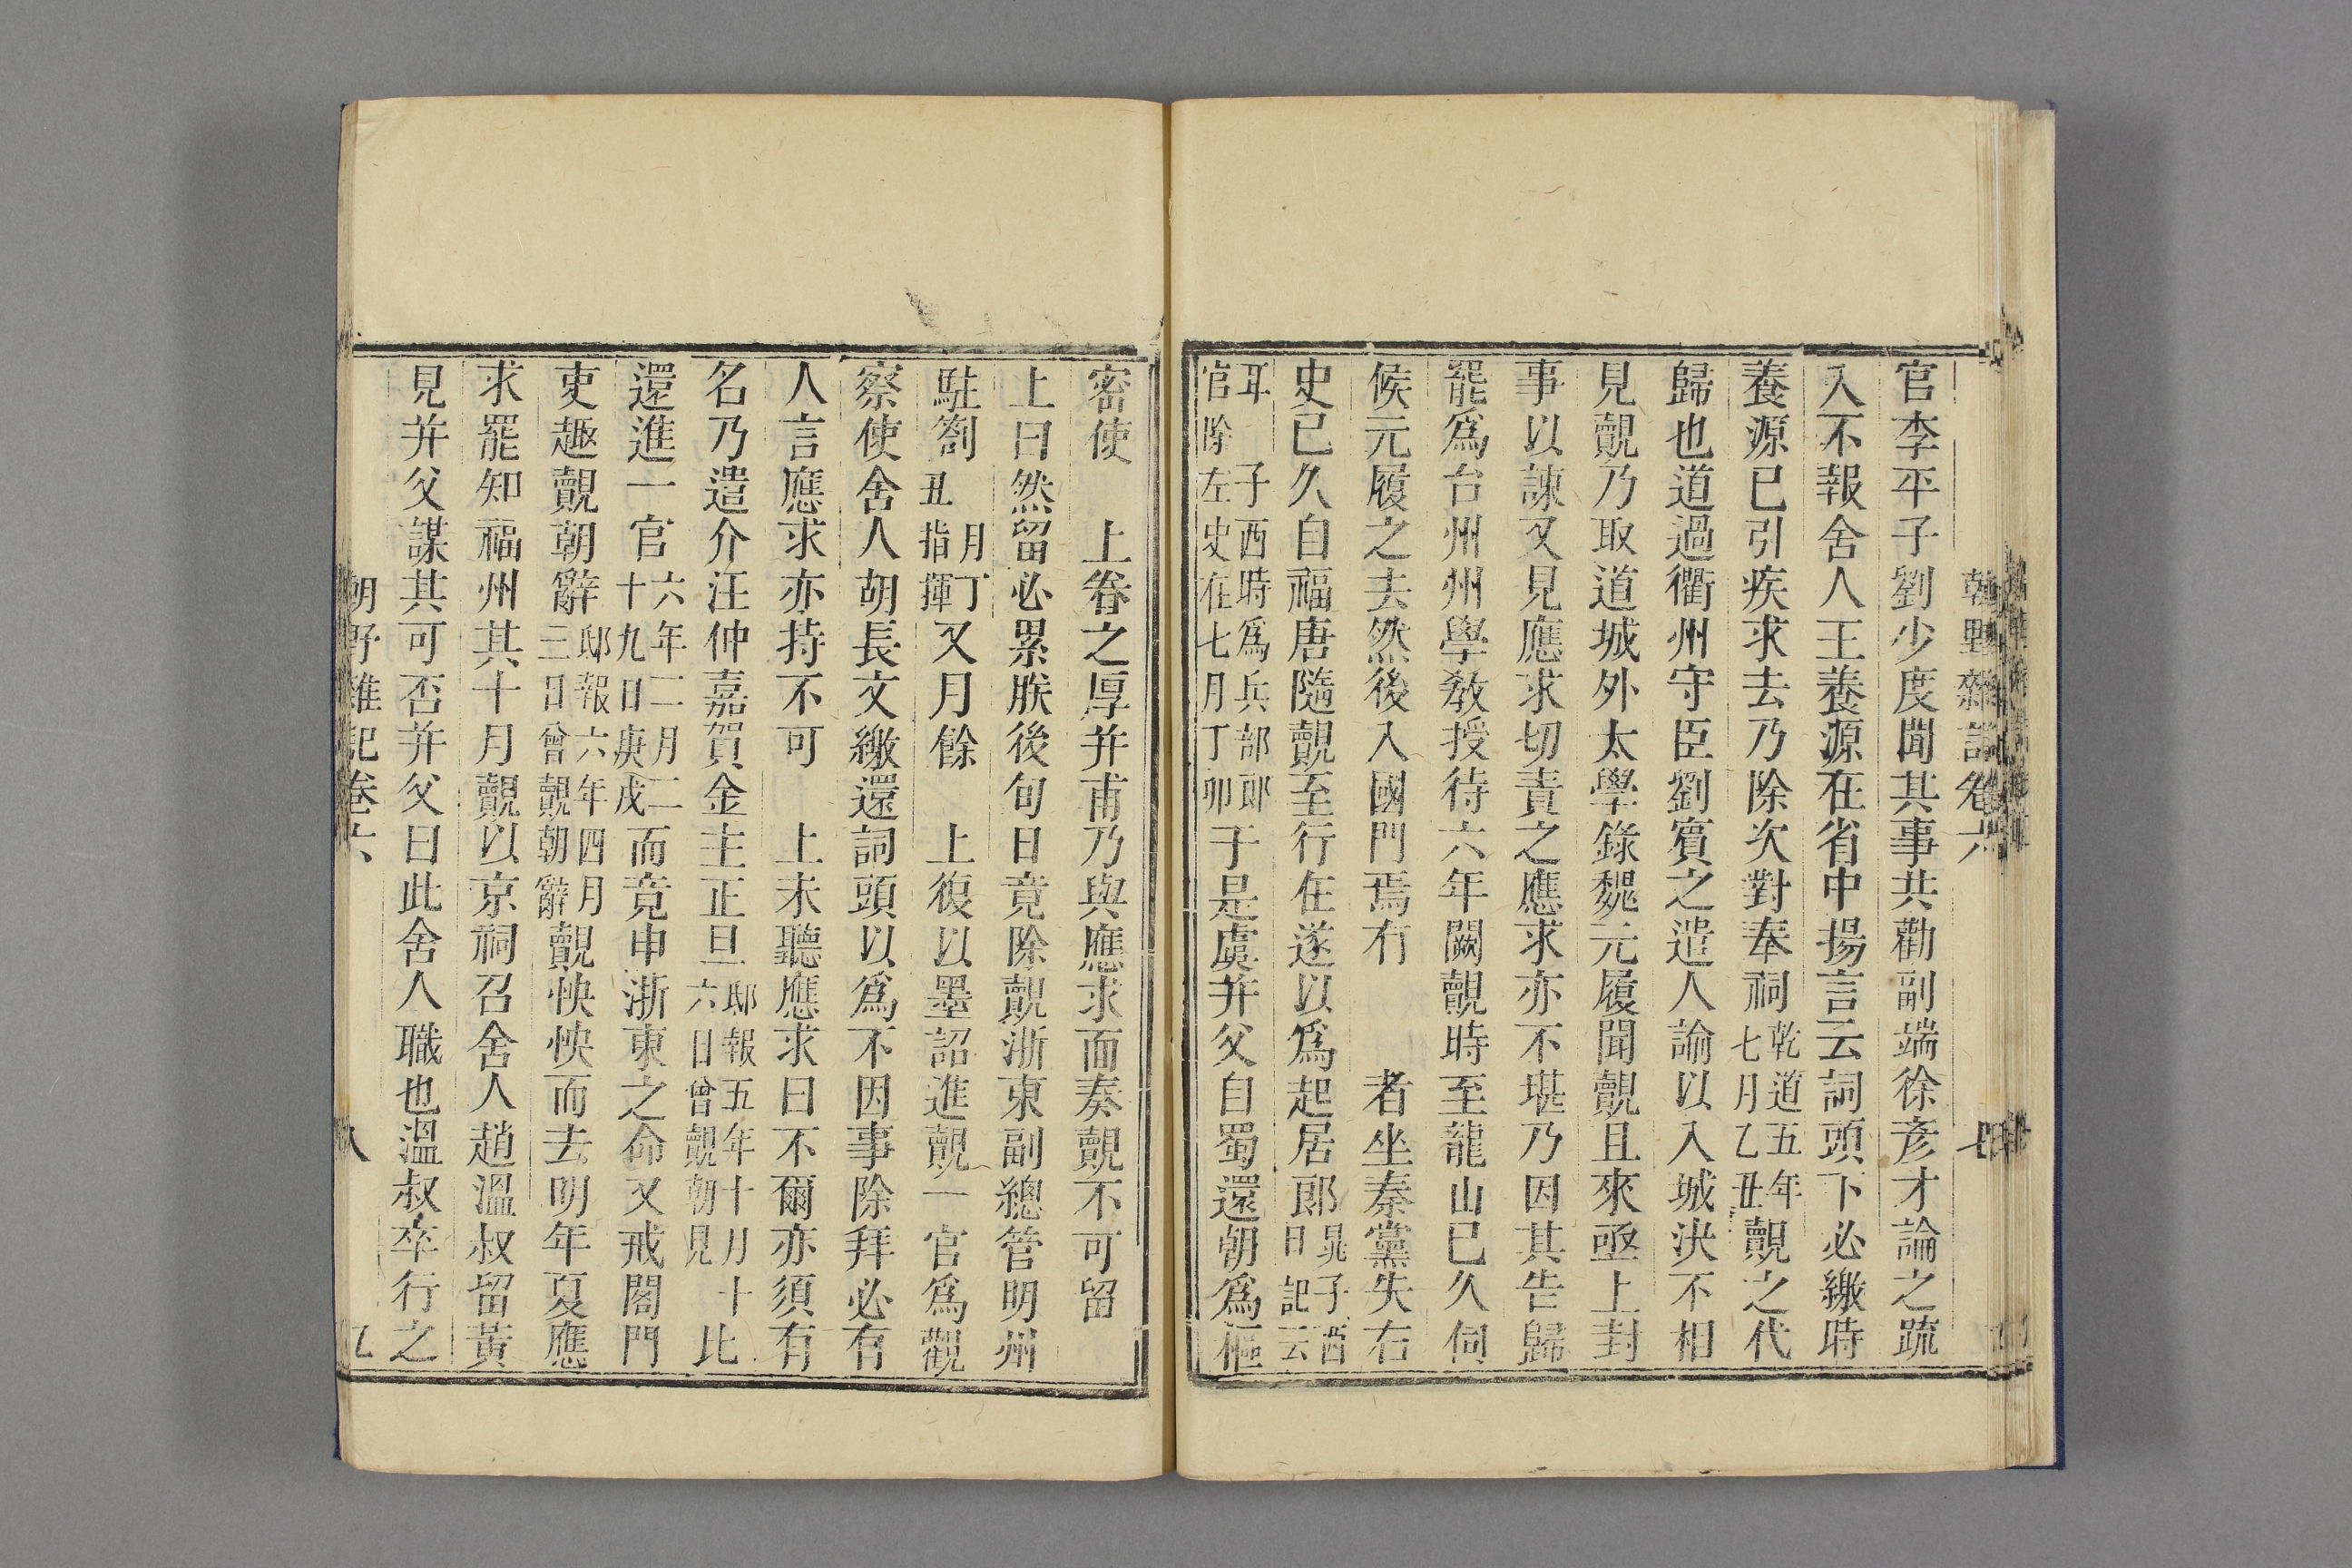 官李平子劉少度聞其事共勸副端徐彥才論之疏
入不報舍人王養源在省中揚言云詞頭下必繳時
養源已引疾求去乃除次對奉祠乾道五年七月乙丑覿之代
歸也道過衢州守臣劉賓之遣人諭以入城決不相
見覿乃取道城外太學錄魏元履聞覿且來亟上封
事以諫又見應求切責之應求亦不堪乃因其告歸
罷爲台州州學敎授待六年闕覿時至龍山已久伺
候元履之去然後入國門焉有 者坐秦黨失右
史已久自福唐隨覿至行在遂以爲起居郎晁子西日記云
耳 子西時爲兵部郎官除左史在七月丁卯于是虞并父自蜀還朝爲樞
密使 上眷之厚并甫乃與應求面奏覿不可留
上曰然留必累朕後旬日竟除覿浙東副總管明州
駐劄 月丁丑指揮又月餘 上復以墨詔進覿一官爲觀
察使舍人胡長文繳還詞頭以爲不因事除拜必有
人言應求亦持不可 上未聽應求曰不爾亦須有
名乃遣介汪仲嘉賀金主正旦邸報五年十月十六日曾覿朝見比
還進一官六年二月二十九日庚戌而竟申浙東之命又戒閤門
吏趣覿朝辭邸報六年四月三日曾覿朝辭覿怏怏而去明年夏應
求罷知福州其十月覿以京祠召舍人趙溫叔留黃
見并父謀其可否并父曰此舍人職也溫叔卒行之
朝野雜記卷六 八 乙